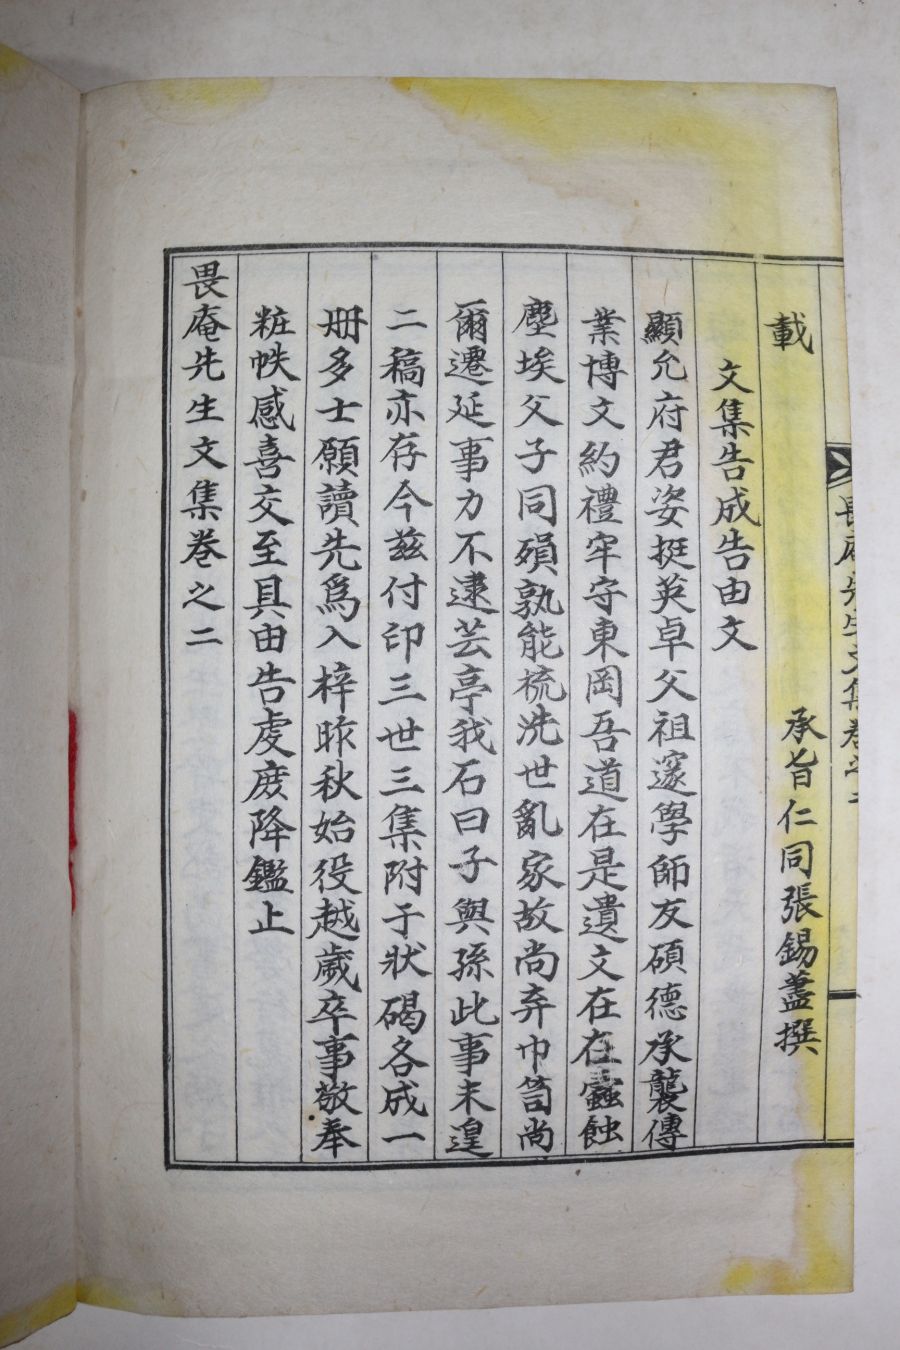 畏庵先生文集卷之二
載
承旨仁同張錫藎撰
文集告成告由文
顯允府君姿挺英卓父祖邃學師友碩德承襲傳
業博文約禮牢守東岡吾道在是遺文在在蠹蝕
塵埃父子同殞孰能梳洗世亂家故尚弃巾笥尚
爾遷延事力不逮芸亭我石曰子與孫此事未遑
二稿亦存今玆付印三世三集附于狀碣各成一
冊多士願讀先爲入梓昨秋始役越歲卒事敬奉
粧帙感喜交至具由告虔庶降鑑止
畏庵先生文集卷之二